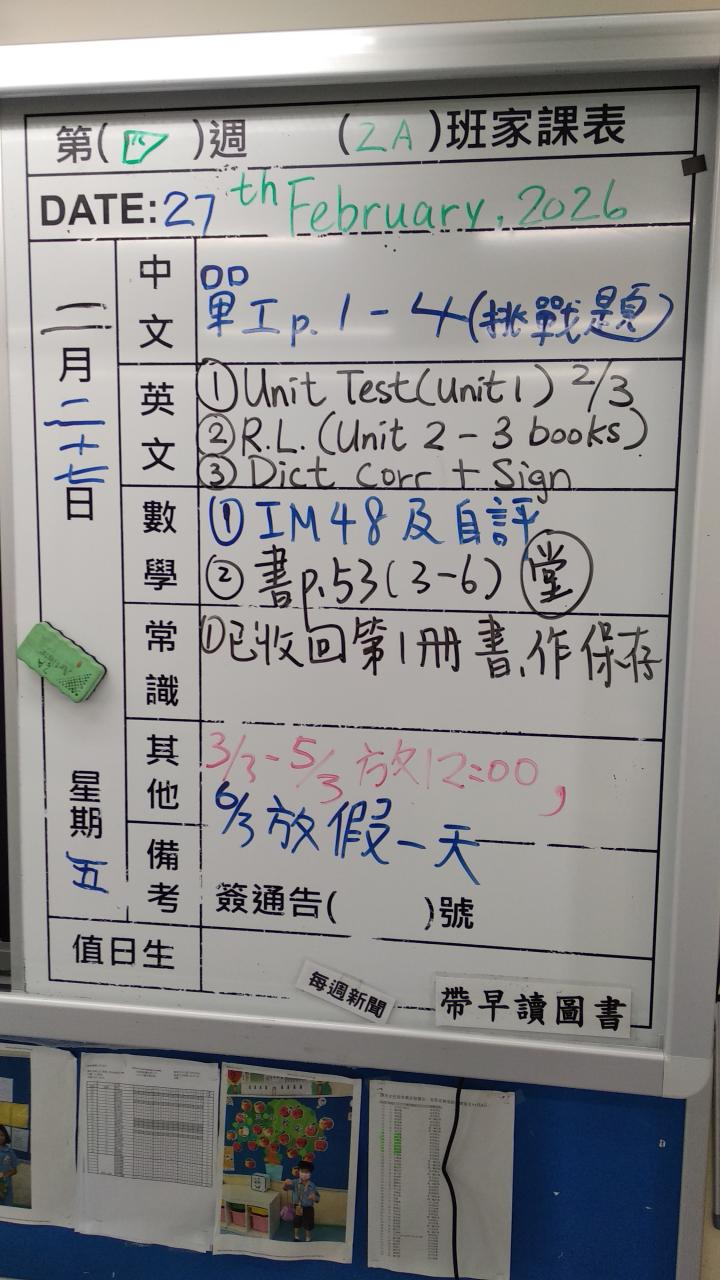 第(四)週 (2A)班家課表
DATE: 27th February, 2026
二月二十七日
星期五
中文
單工p.1-4(挑戰題)
英文
①Unit Test(Unit 1) 2/3
②R.L.(Unit 2-3 books)
③Dict Corr + Sign
數學
①IM48及自評
②書p.53(3-6) 堂
常識
①已收回第1冊書、作保存
其他
3/3-5/3放12:00,
6/3放假一天
備考
簽通告( )號
值日生
每週新聞
帶早讀圖書